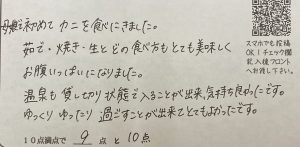 母娘で初めてカニを食べにきました。
茹で・焼き・生とどの食べ方もとても美味しく
お腹いっぱいになりました。
温泉も貸し切り状態で入ることが出来、気持ち良かったです。
ゆっくりゆったり過ごすことが出来てとてもよかったです。
10点満点で 9 点と10点
スマホでも投稿
OK!チェック欄
記入後フロント
へお渡し下さい。